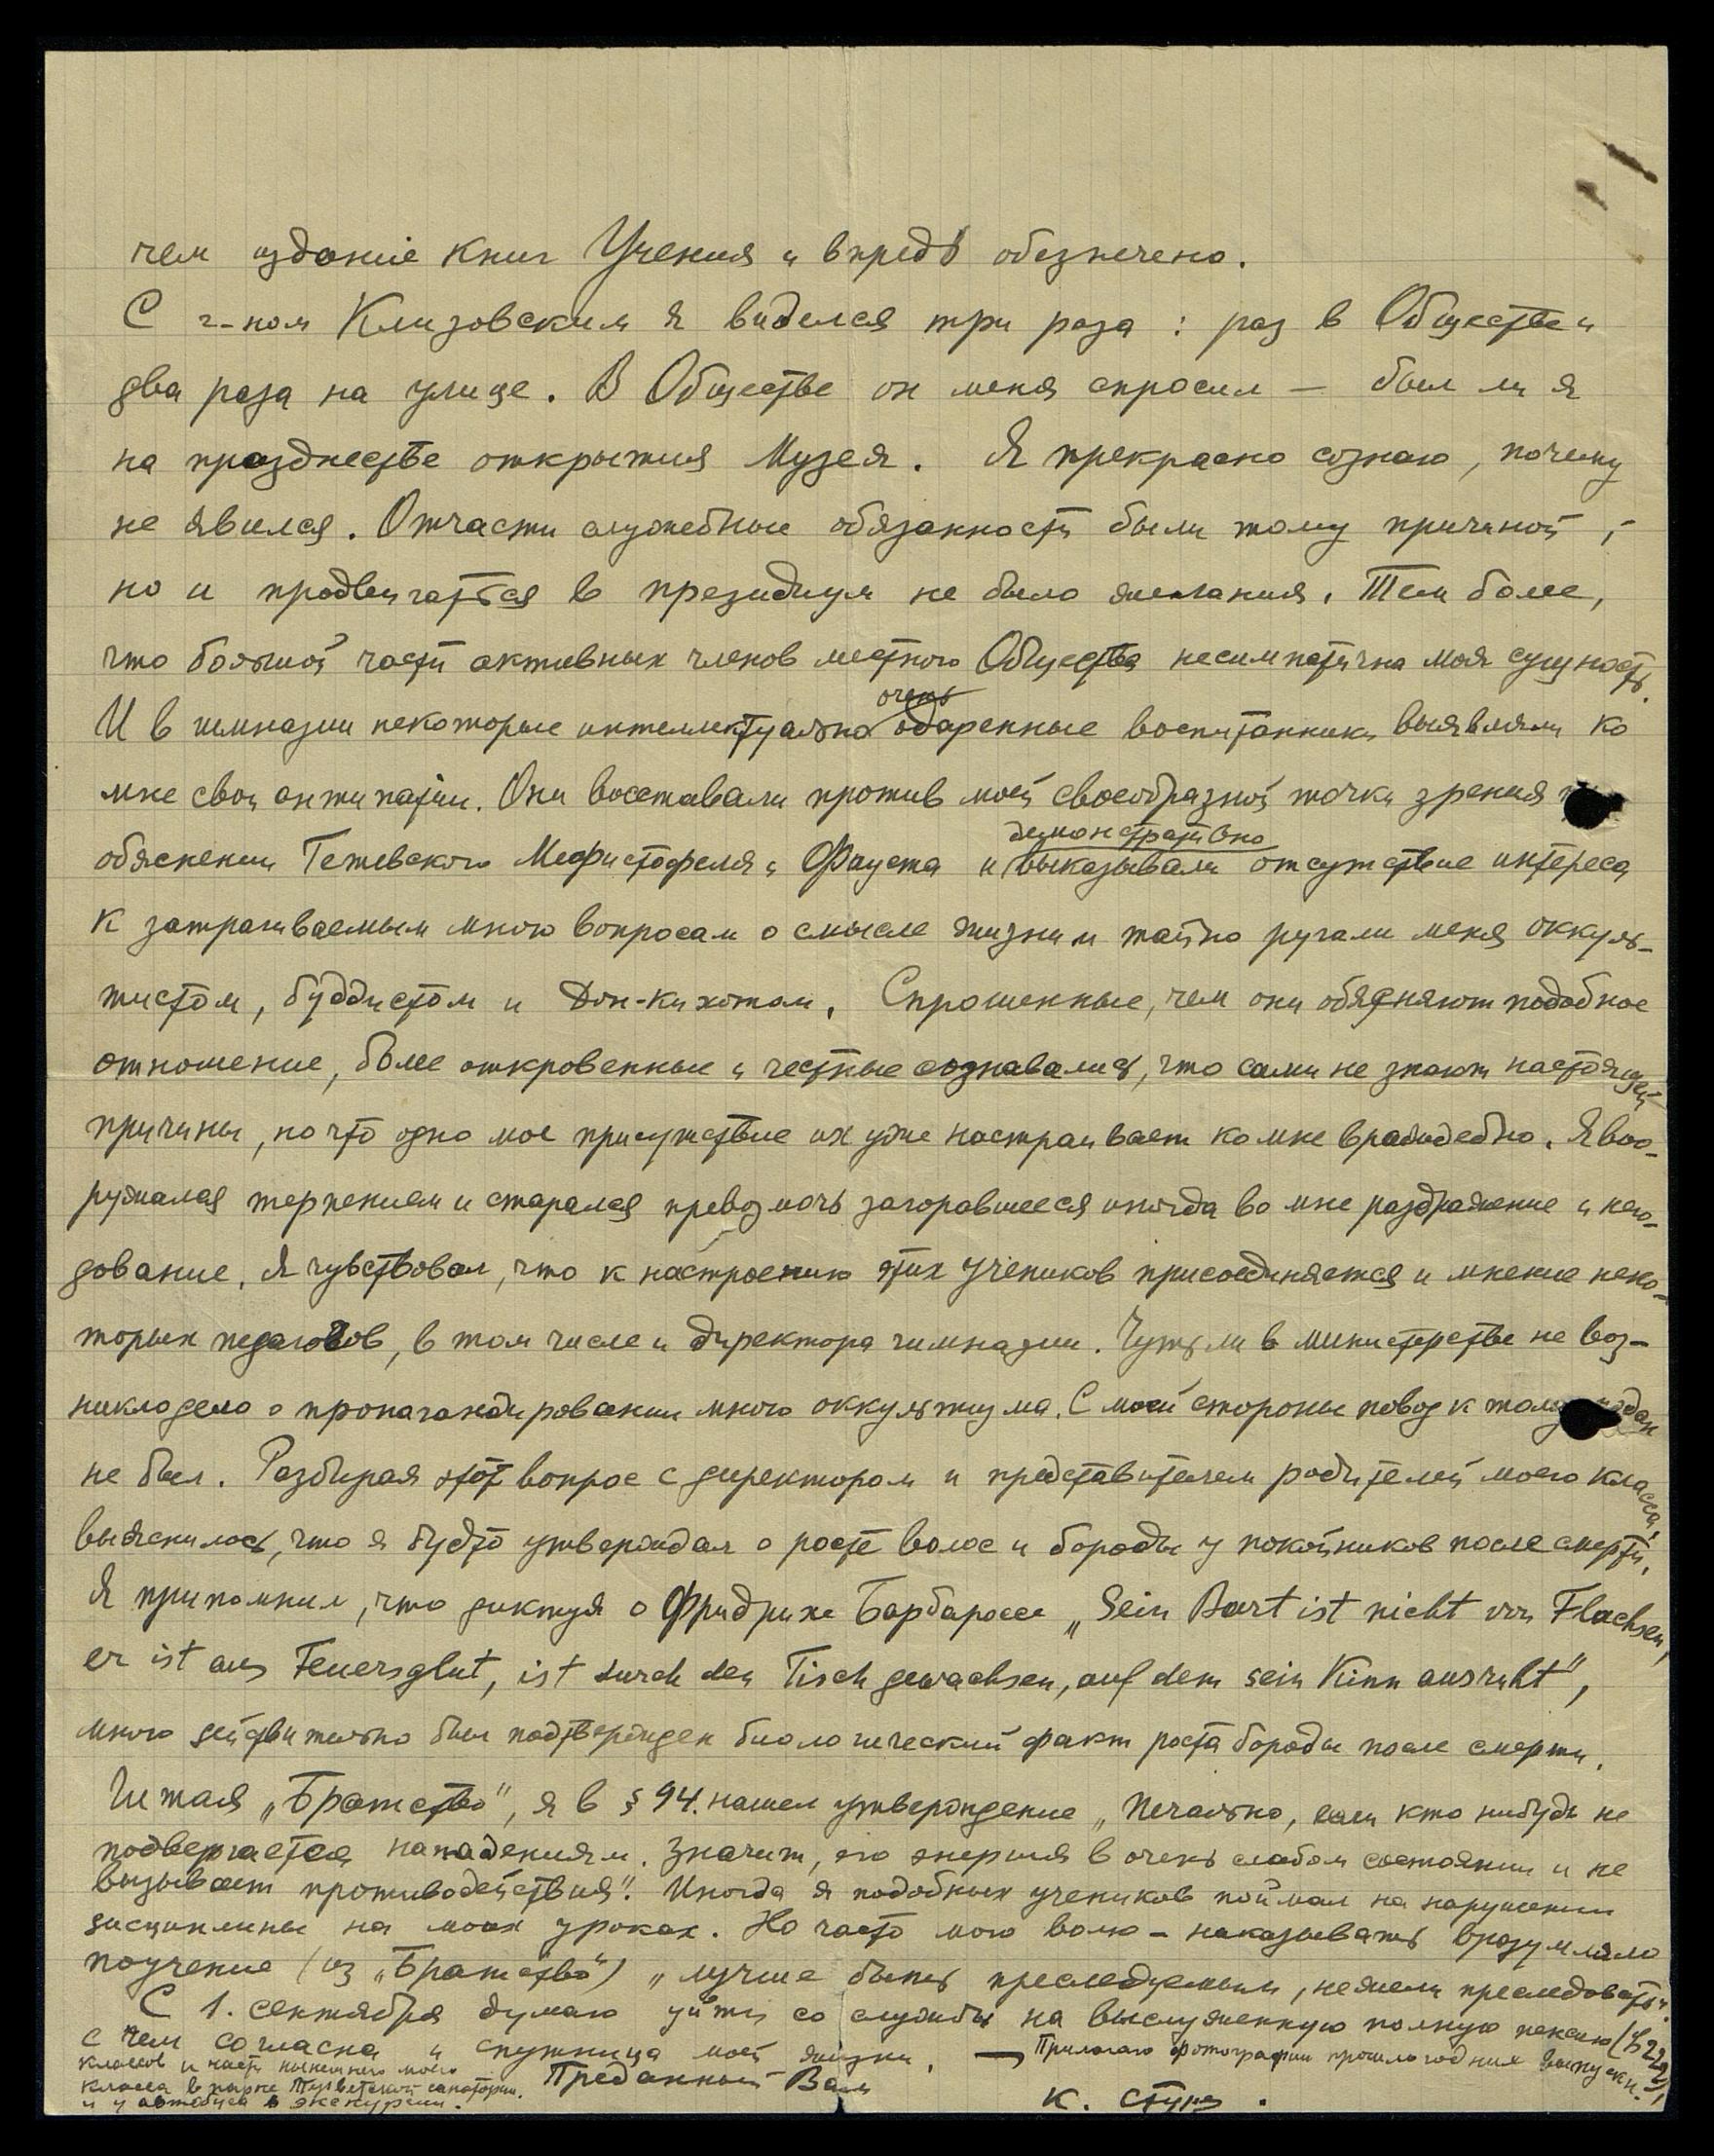 чем издание книг Учения и впредь обезпечено.
С г-ном Клизовским я виделся три раза : раз в Обществе и
два раза на улице. В Обществе он меня спросил — был ли я
на празднестве открытия Музея. Я прекрасно сознаю, почему
не явился. Отчасти служебные обязанности были тому причиной ;
но и продвигаться в президиум не было желания. Тем более,
что большой части активных членов местного Общества несимпатична моя сущность.
И в гимназии некоторые интеллектуально очень одаренные воспитанники выявляли ко
мне свои антипатии. Они восставали против моей своеобразной точки зрения
обяснении Гетевского Мефистофеля и Фауста и демонстративно выказывали отсутствие интереса
к затрагиваемым мною вопросам о смысле жизни и тайно ругали меня оккуль-
тистом, буддистом и Дон-Кихотом. Спрошенные, чем они обясняют подобное
отношение, более откровенные и честные сознавались, что сами не знают настоящей
причины, но что одно мое присутствие их уже настраивает ко мне враждебно. Я воо-
ружался терпением и старался превозмочь загоравшееся иногда во мне раздражение и него-
дование. Я чувствовал, что к настроению этих учеников присоединяется и мнение неко-
торых педагогов, в том числе и директора гимназии. Чуть ли в министерстве не воз-
никло дело о пропагандировании мною оккультизма. С моей стороны повод к тому подан
не был. Разбирая этот вопрос с директором и представителем родителей моего класса,
выяснилось, что я будто утверждал о росте волос и бороды у покойников после смерти.
Я припомнил, что диктуя о Фридрихе Барбароссе „Sein Bart ist nicht von Flachsen,
er ist aus Feuersglut, ist durch den Tisch gewachsen, auf dem sein Kinn ausruht",
мною действительно был подтвержден биологический факт роста бороды после смерти.
Читая „Братство", я в § 94. нашел утверждение „Печально, если кто нибудь не
подвергается нападениям. Значит, его энергия в очень слабом состоянии и не
вызывает противодействия". Иногда я подобных учеников поймал на нарушении
дисциплины на моих уроках. Но часто мою волю – наказывать вразумляло
поучение (из „Братства") „лучше быть преследуемым, нежели преследовать".
С 1. сентября думаю уйти со службы на выслуженную полную пенсию
с чем согласна и спутница моей жизни. — Прилагаю фотографии прошлогодних выпускн.
классов и части нынешнего моего
класса в парке санатории.
и у автобуса в экскурсии.
Преданный Вам
К. Стуре .